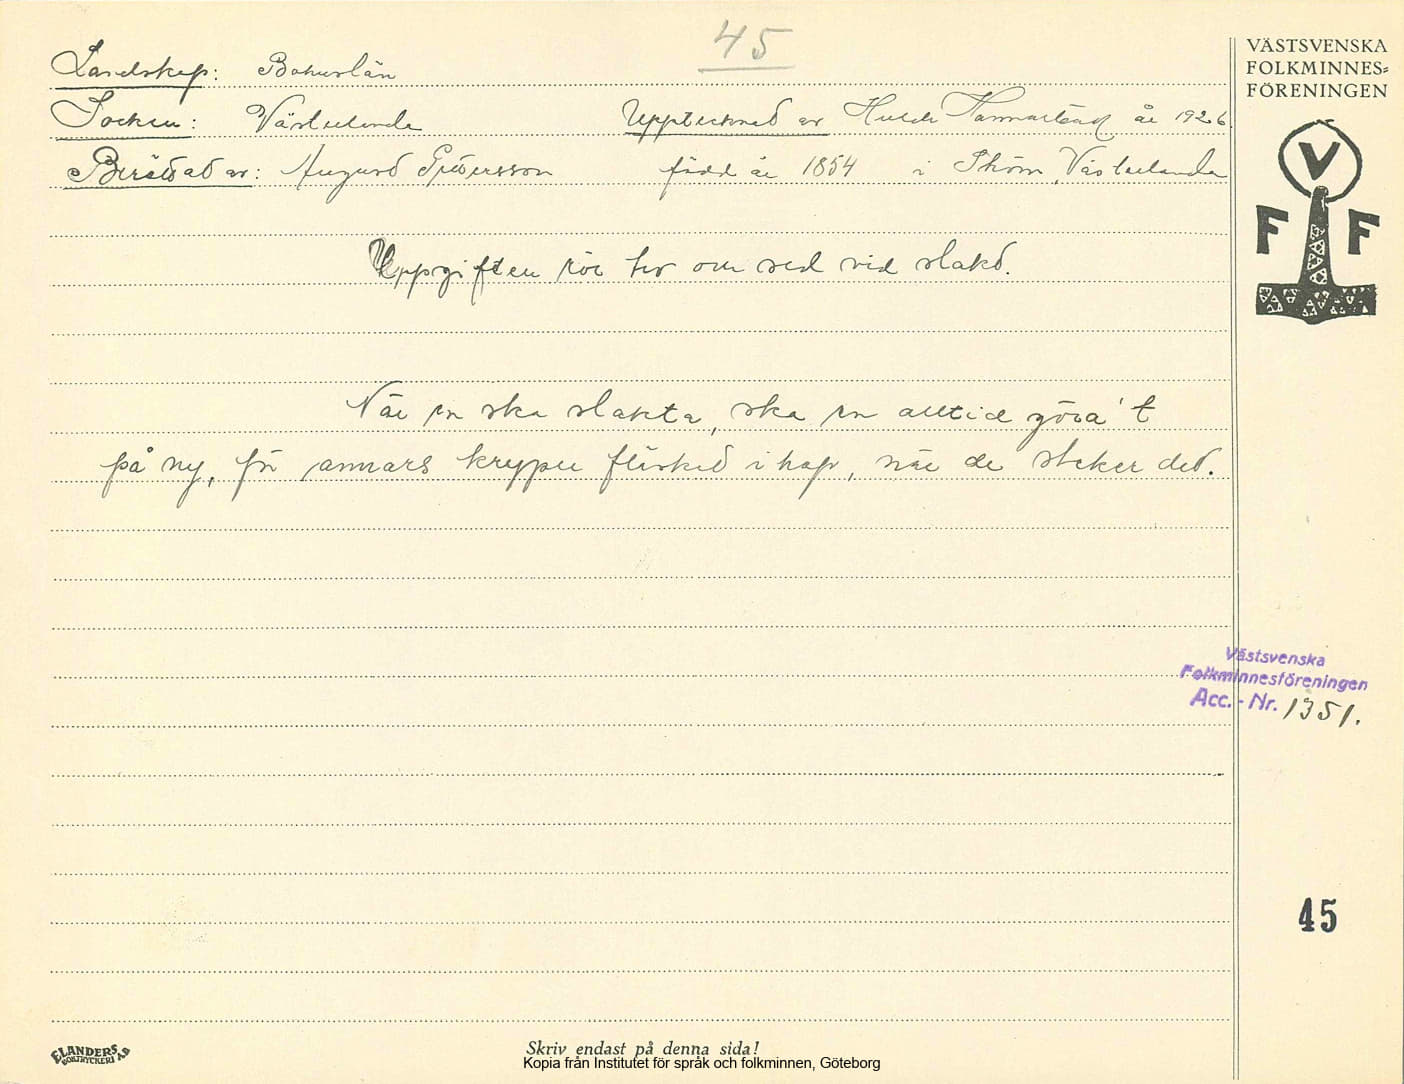 45
VÄSTSVENSKA
FOLKMINNES=
FÖRENINGEN
Landskap: Bohuslän
Socken: Västerlanda Upptecknad av Hulda Hammarbäck år 1926
Berättad av: August Pettersson född år 1854 i Ström, Västerlanda
V
F F
Uppgiften rör tro om sed vid slakt.
När en ska slakta, ska en alltid göra't
på ny, för annars kryper fläsket ihop, när de steker det.
Västsvenska
Folkminnesföreningen
Acc. - Nr. 1351.
45
ELANDERS
BOKTRYCKERI AB
Skriv endast på denna sida!
Kopia från Institutet för språk och folkminnen, Göteborg